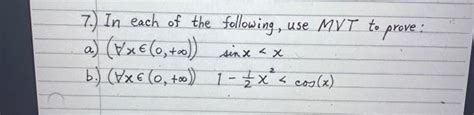 7.) In each of the following, use MVT to prove:
a) (∀x∈(0,+∞)) sinx < x
b.) (∀x∈(0,+∞)) 1 - ½x² < cos(x)